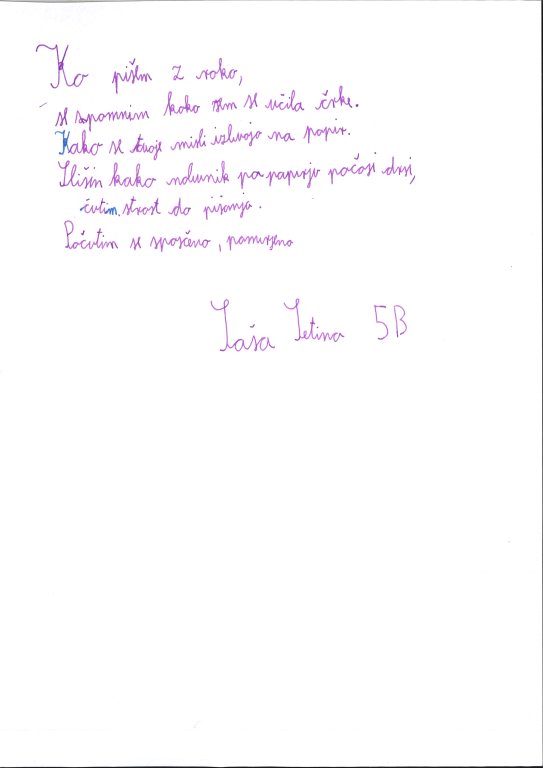 Ko pišem z roko,
se spomnim kako sem se učila črke.
Kako se tvoje misli izlivajo na papir.
Slišim kako nalivnik po papirju počasi drsi,
čutim strast do pisanja.
Počutim se sposčeno, pomirjeno
Saša Jetina 5B